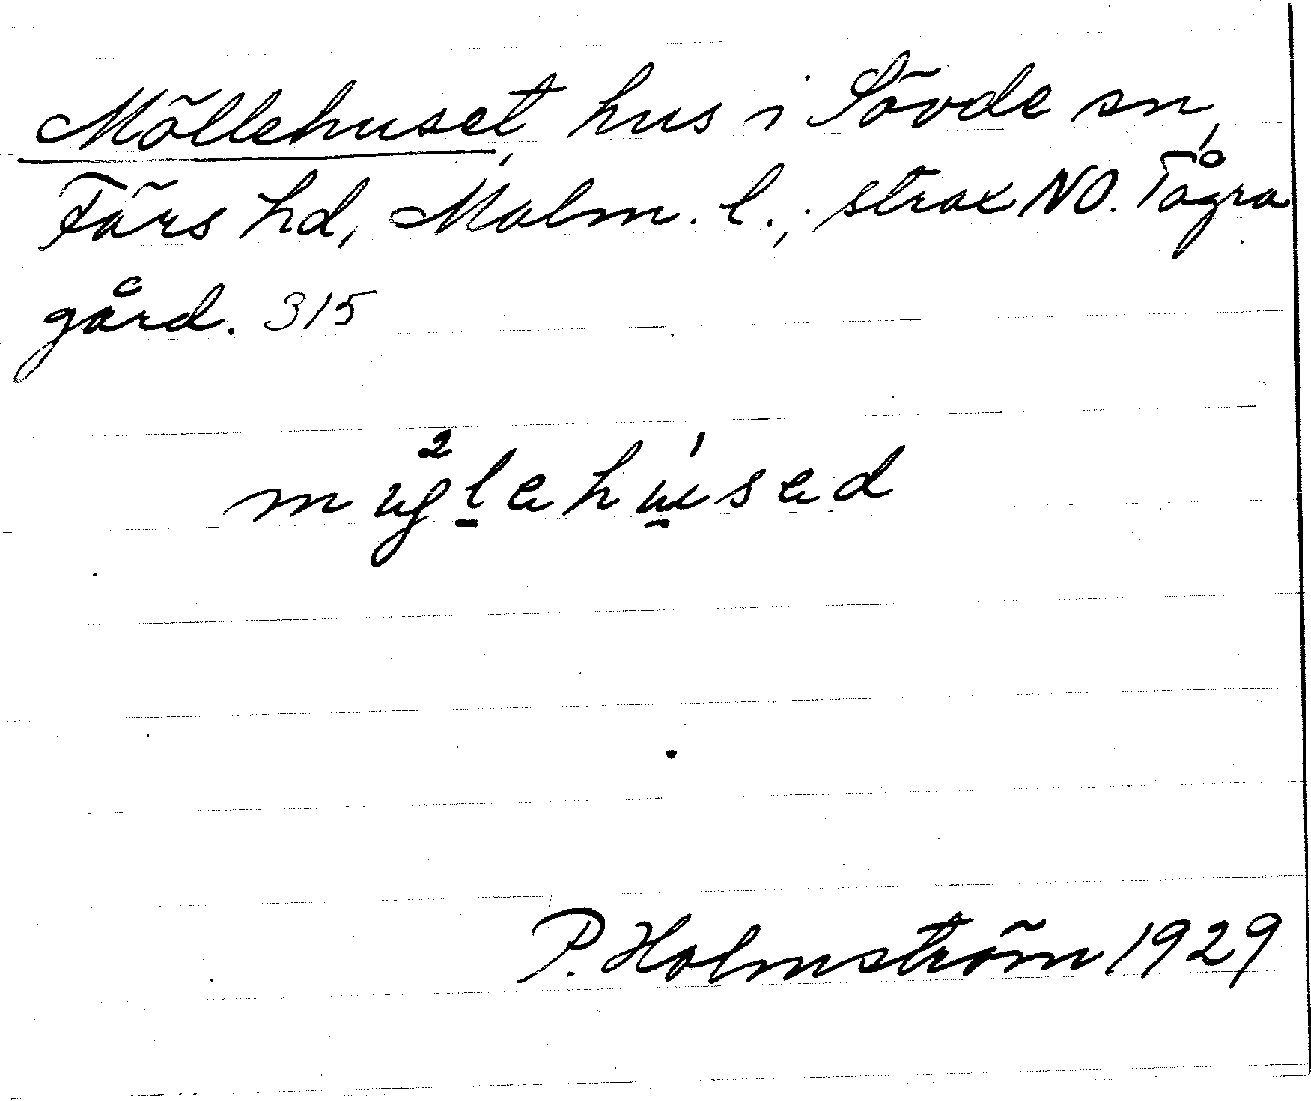 Möllehuset, hus i Sövde sn,
Färs hd, Malm. l., strax NO. Tågra
gård. 315
P. Holmström 1929